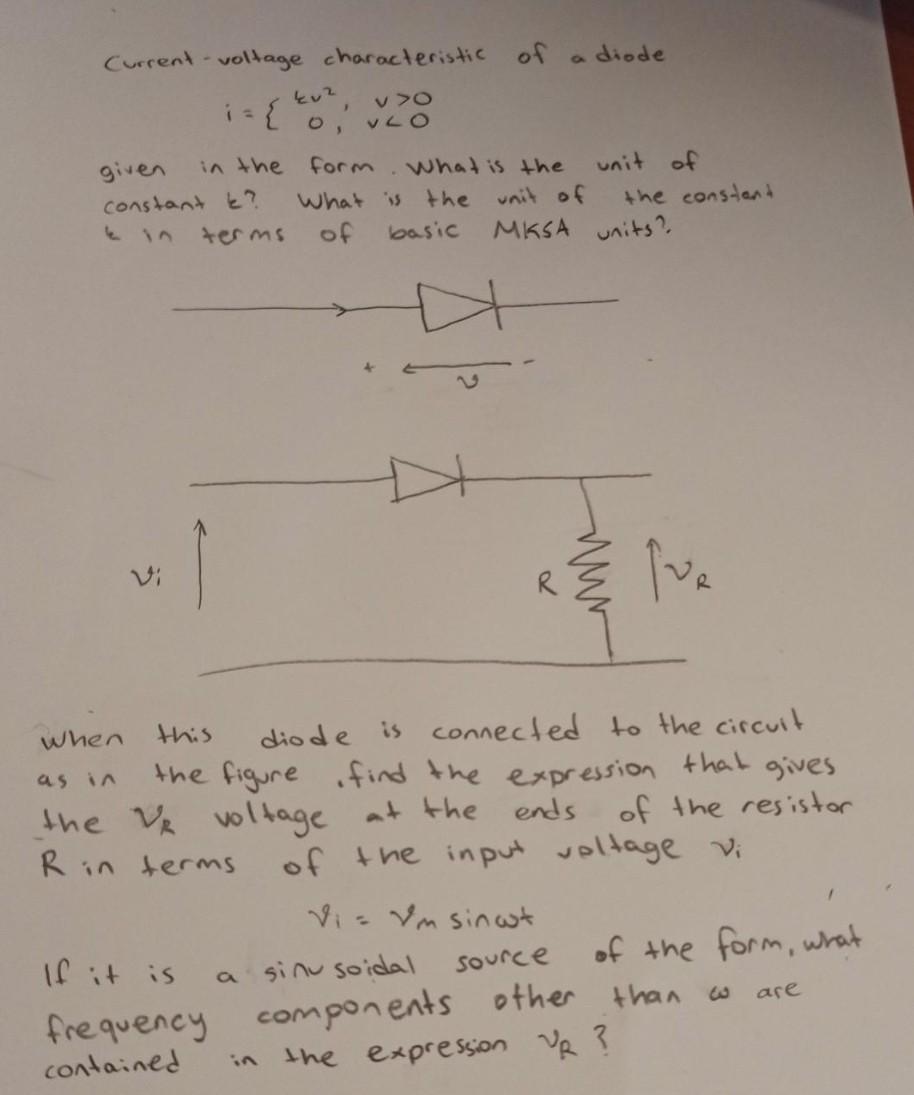 Current-voltage characteristic of a diode
i = { kv², v>0
0, v<0
given in the form. What is the unit of
constant k? What is the unit of the constant
k in terms of basic MKSA units?
+ v -
vi R vR
When this diode is connected to the circuit
as in the figure, find the expression that gives
the VR voltage at the ends of the resistor
R in terms of the input voltage vi
vi = vm sinwt
If it is a sinusoidal source of the form, what
frequency components other than ω are
contained in the expression VR ?